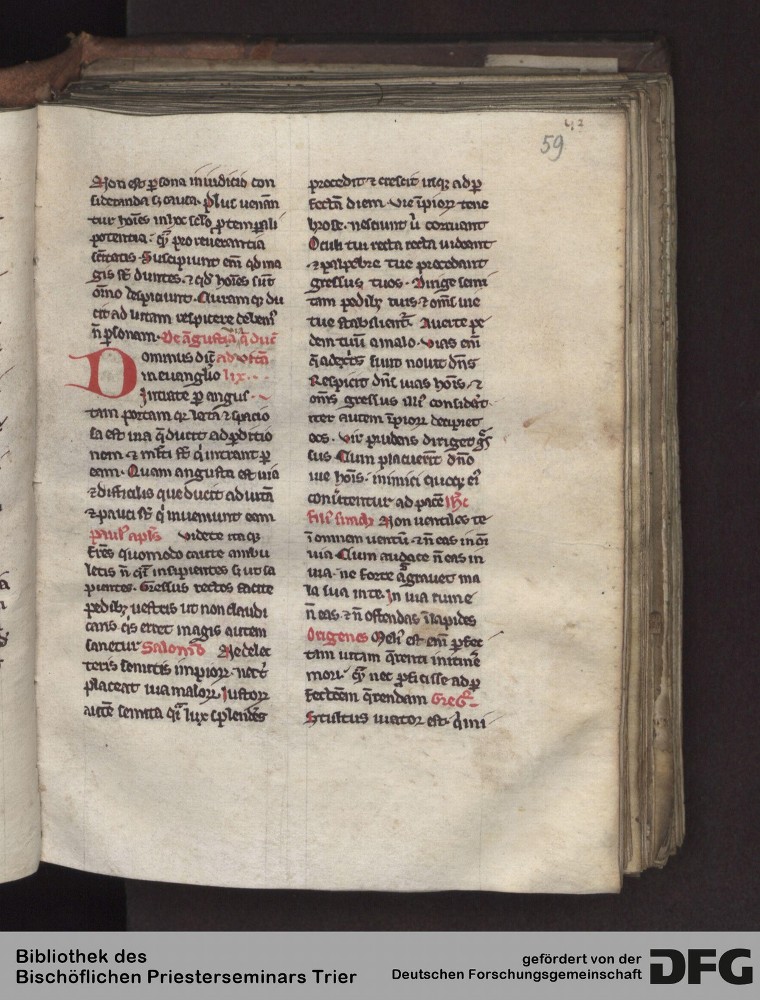 59
42
Non est psona in iudicio con
sideranda s; causa. plus
tur hoies in hoc sclo p temporali
potentia. qm pro reuerantia
scitatis. Suscipiunt em qd
gis st diuites. & qd hoies sunt
oino despiciunt.
cit ad uitam respicere debem9
n psonam. De angustia q duc
Dominus dic ad uita
in euanglio lix.
Intrate p angus
tam portam qr lata & spacio
sa est uia q ducit ad perditio
nem & mlti st q intrant p
eam. Quam angusta est uia
& difficilis que ducit ad uita
& pauci st q inueniunt eam
paul9 apls videte itaq;
fres quomodo caute ambu
letis n qsi insipientes s; ut sa
pientes. Gressus rectos facite
pedib; uestris ut non claudi
cans qs erret magis autem
sanetur Salomo Ne delec
teris semitis impior. nec t
placeat uia malor. iustor
aute semita qsi lux splendes
procedit & crescit usq; ad p
fectam diem. Vie ipior tene
brose. nesciunt u corruant
Oculi tui recta recta uideant
& palpebre tue precedant
gressus tuos. Dirige semi
tam pedib; tuis & oms uie
tue stabilient. Auerte pe
dem tuu a malo. vias em
q a dextris sunt nouit dns
Respicit dns uias hois. &
oms gressus illi9 considat.
iter autem ipior decipiet
eos. Vir prudens diriget gs
sus Cum placuerit dno
uie hois. inimici quoq; ei9
conutentur ad pace Ihc
fili9 sirach Non ventiles te
i omnem uentu. & n eas in oi
uia. Cum audace n eas in
uia. ne forte agrauet ma
la sua in te. In uia ruine
n eas. & n offendas i lapides
Origenes Meli9 est em pfec
tam uitam qrenti
mori. qm nec pficisse ad p
fectoem qrendam Greg
Stultus uiator est. q ini
Bibliothek des
Bischöflichen Priesterseminars Trier
gefördert von der
Deutschen Forschungsgemeinschaft
DFG